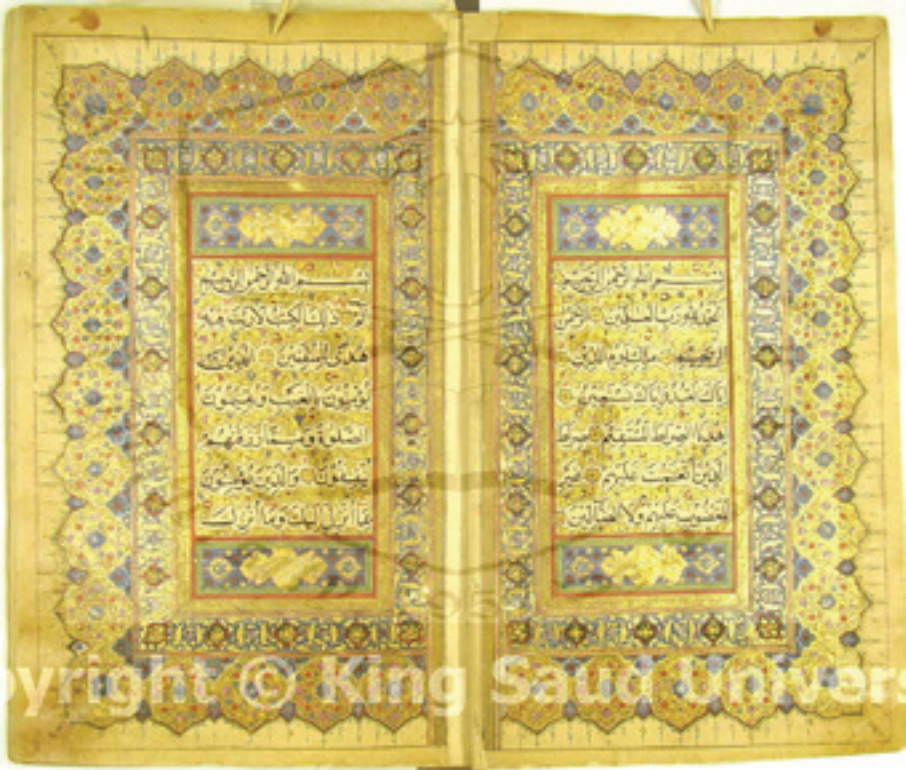 بسم الله الرحمن الرحيم
الحمد لله رب العالمين الرحمن
الرحيم مالك يوم الدين
إياك نعبد وإياك نستعين
اهدنا الصراط المستقيم صراط
الذين أنعمت عليهم غير
المغضوب عليهم ولا الضالين
بسم الله الرحمن الرحيم
الم ذلك الكتاب لا ريب فيه
هدى للمتقين الذين
يؤمنون بالغيب ويقيمون
الصلوة ومما رزقناهم
ينفقون والذين يؤمنون
بما أنزل إليك وما أنزل
pyright © King Saud Univers